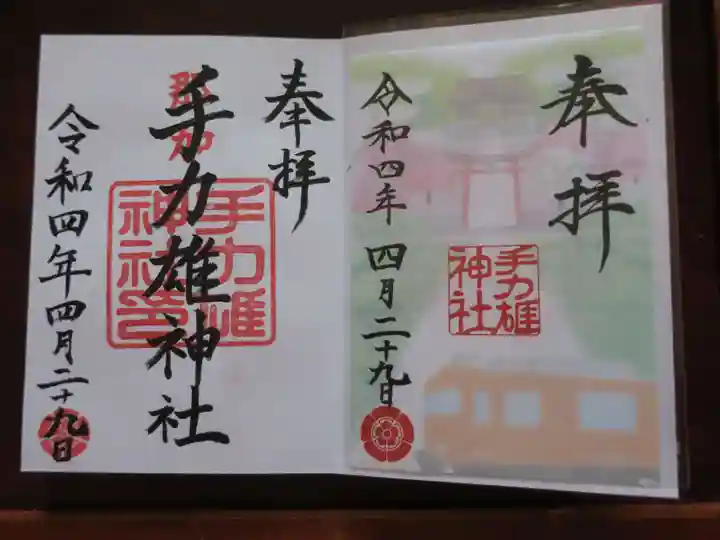 奉拝
令和四年 四月二十九日
手力雄神社
奉拝
手力雄神社
令和四年四月二十九日
手力雄神社印